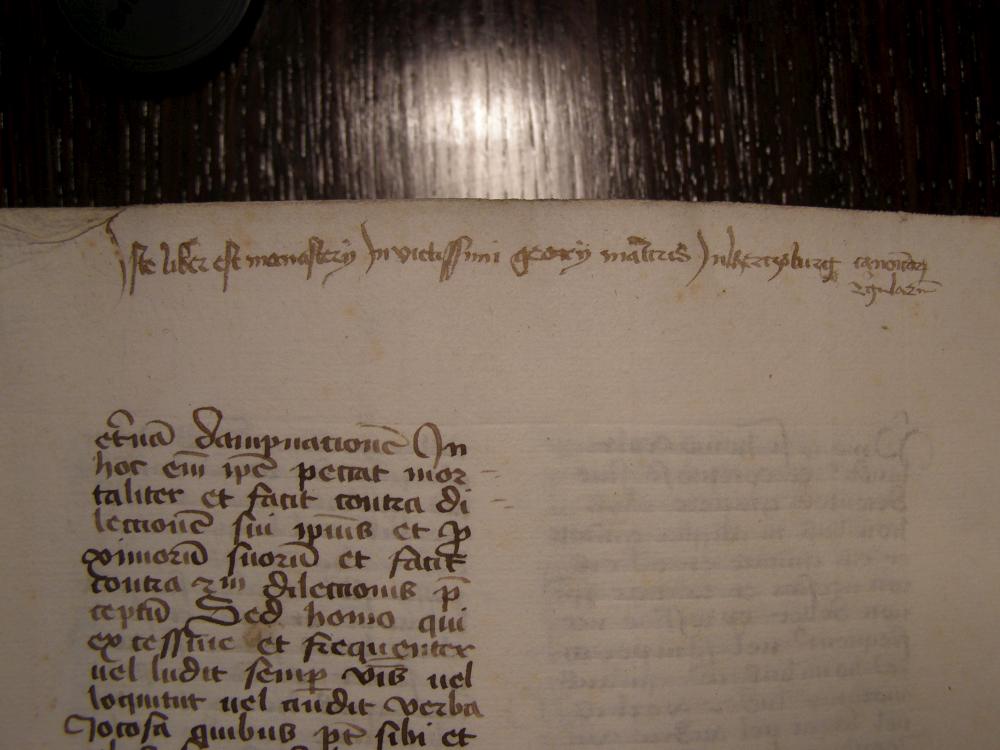 Iste liber est monasterij Invictissimi georij mrĩs Inhertzburg canonicoꝝ
regulariũ
et̃nã dampnacionẽ In
hoc em̃ ip̃e peccat mor
taliter et facit contra di
lectionẽ sui ip̃ius et ꝓ
ximorũ suorũ et facit
contra 2m dilectionis p̃
ceptũ Sed homo qui
excessiue et frequenter
uel ludit semꝑ vĩs uel
loquitur uel audit verba
Jocosa quibus pt̃ sibi et